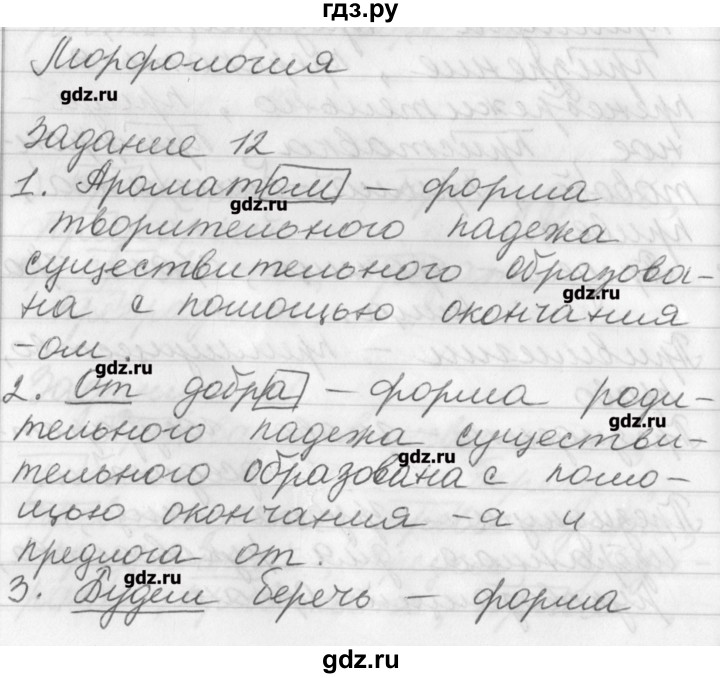 гдз.ру
Морфология
gdz.ru
Задание 12
1. Ароматом – форма
gdz.ru
творительного падежа
существительного образова-
gdz.ru
на с помощью окончания
-ом.
gdz.ru
2. От добра – форма роди-
gdz.ru
тельного падежа существи-
gdz.ru
тельного образована с помо-
щью окончания -а и
предлога от.
gdz.ru
3. Будем беречь – форма
gdz.ru